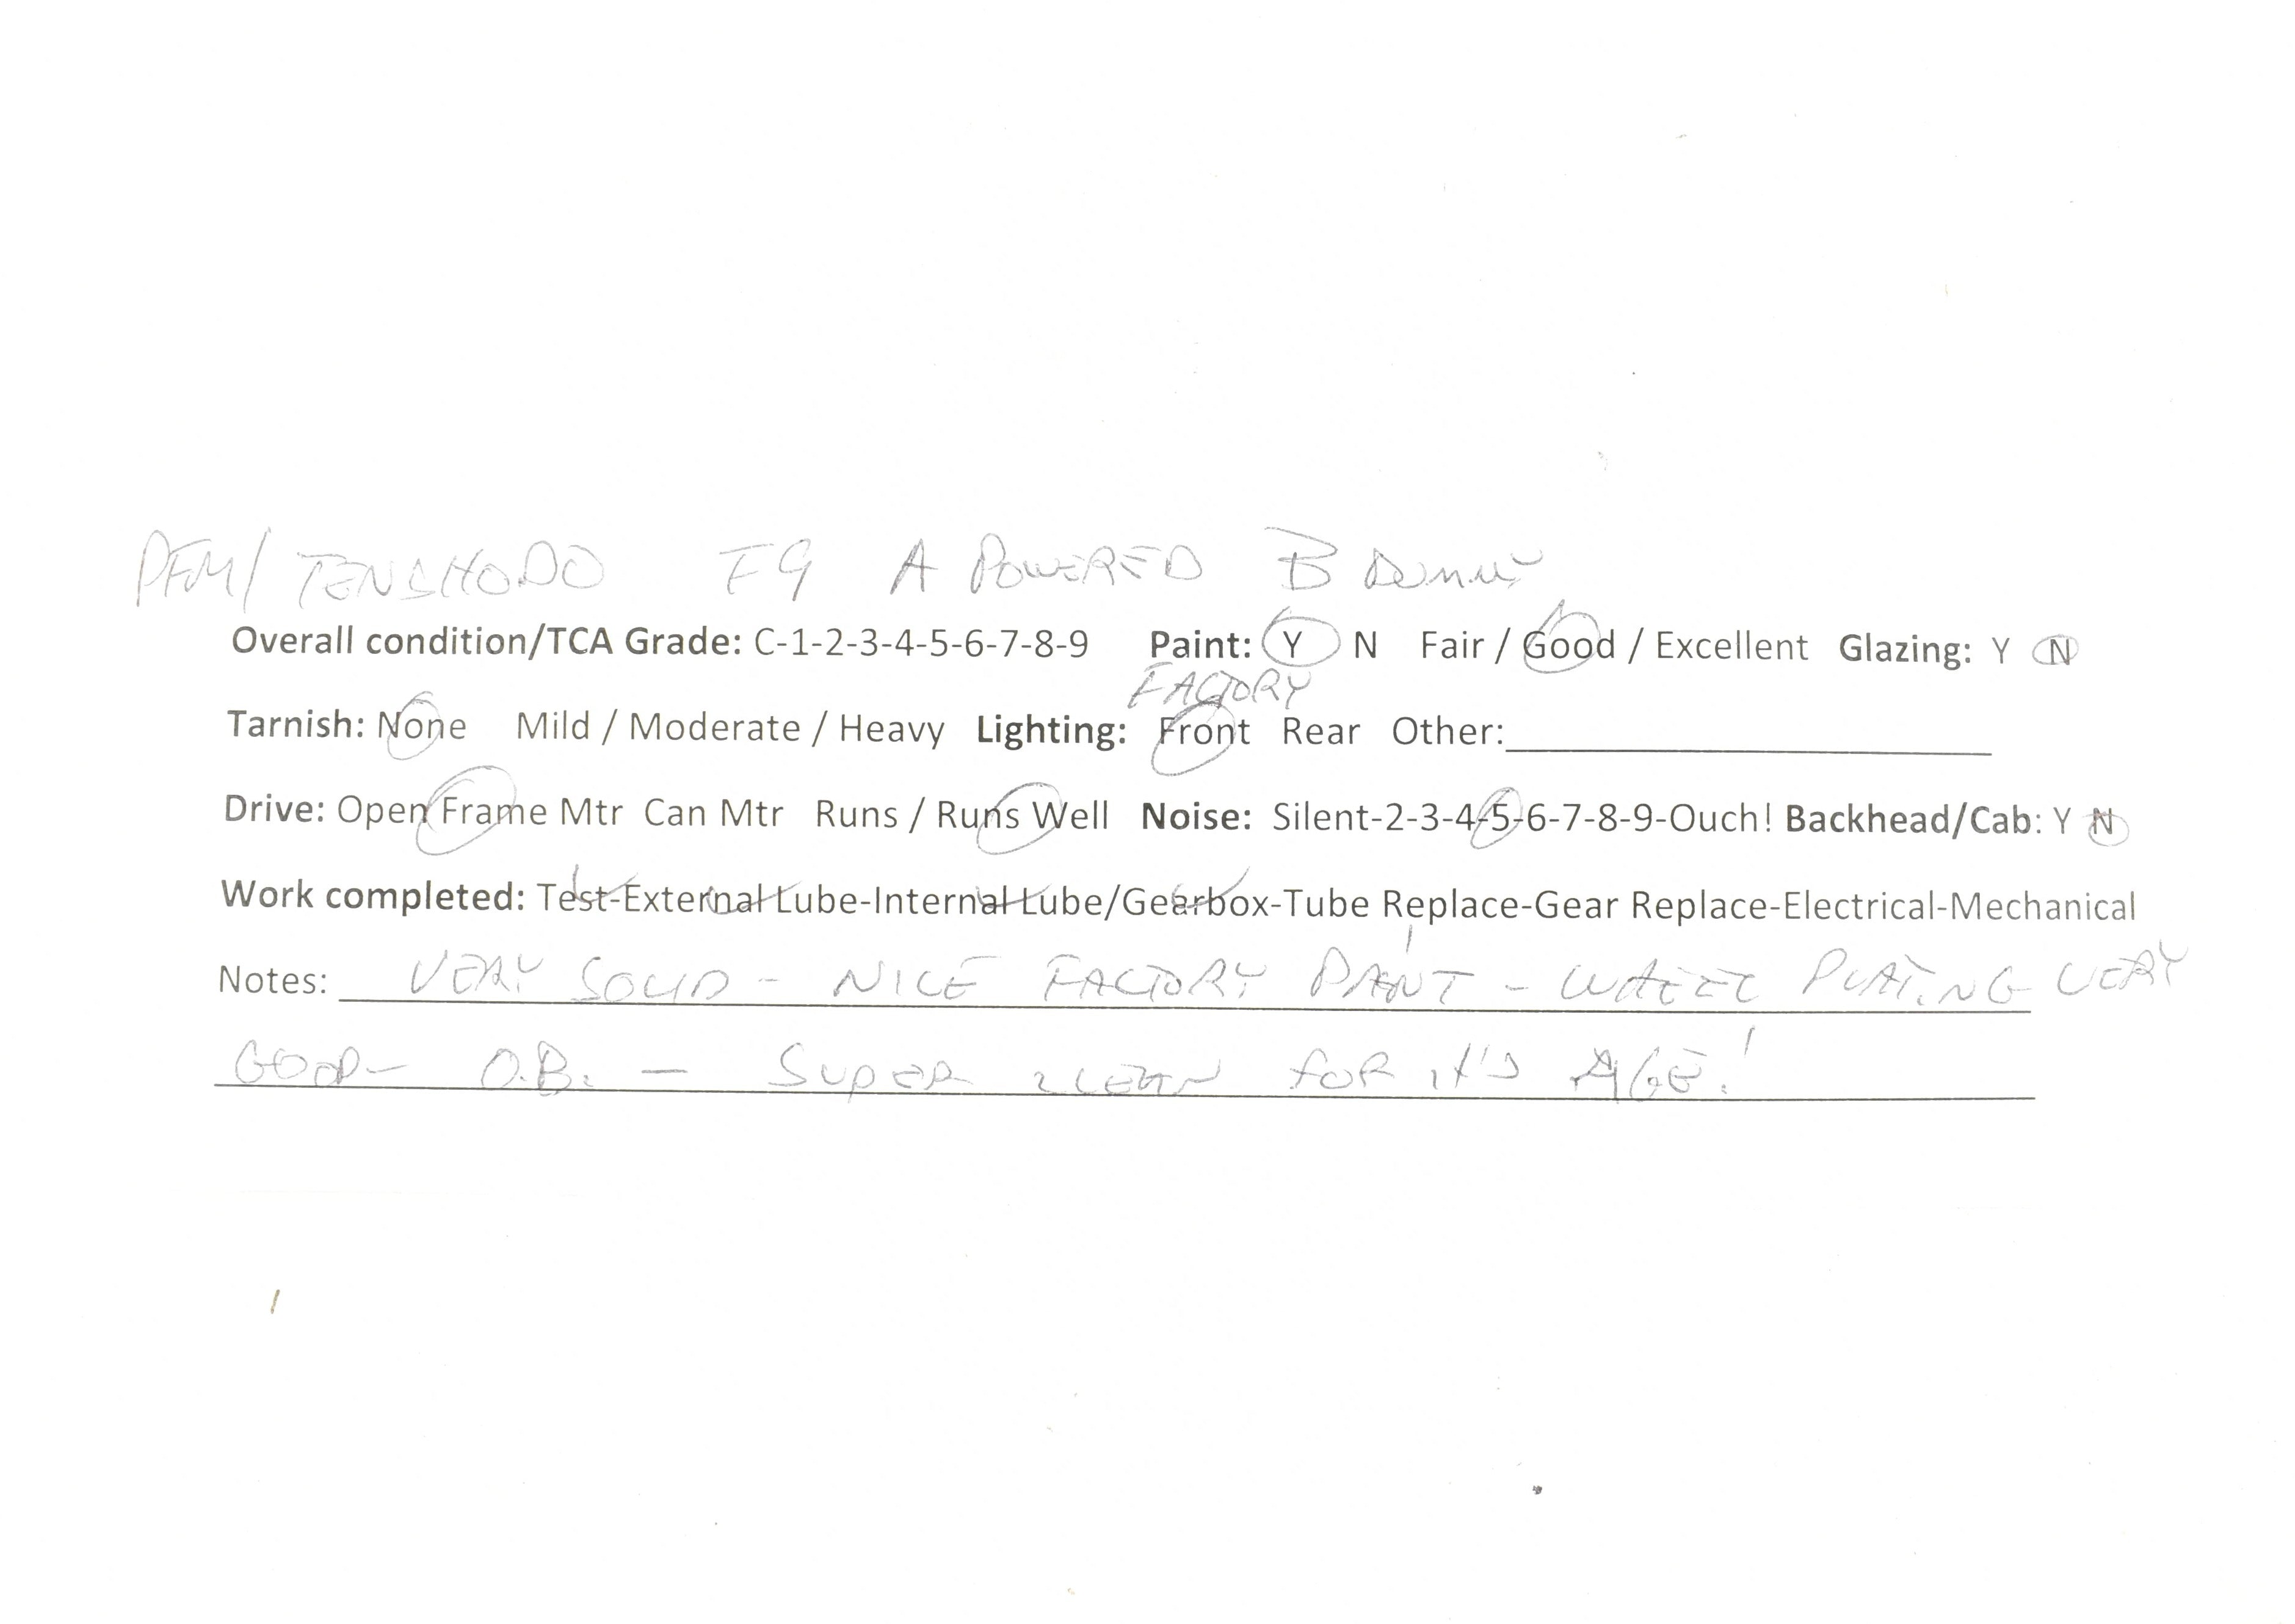 PFM/TENSHODO F9 A POWERED B Dummy
Overall condition/TCA Grade: C-1-2-3-4-5-6-7-8-9 Paint: Y N Fair / Good / Excellent Glazing: Y N
FACTORY
Tarnish: None Mild / Moderate / Heavy Lighting: Front Rear Other:
Drive: Open Frame Mtr Can Mtr Runs / Runs Well Noise: Silent-2-3-4-5-6-7-8-9-Ouch! Backhead/Cab: Y N
Work completed: Test-External Lube-Internal Lube/Gearbox-Tube Replace-Gear Replace-Electrical-Mechanical
Notes: VERY SOLID - NICE FACTORY PAINT - WHEEL PLATING VERY
GOOD - O.B. - SUPER CLEAN FOR IT'S AGE!